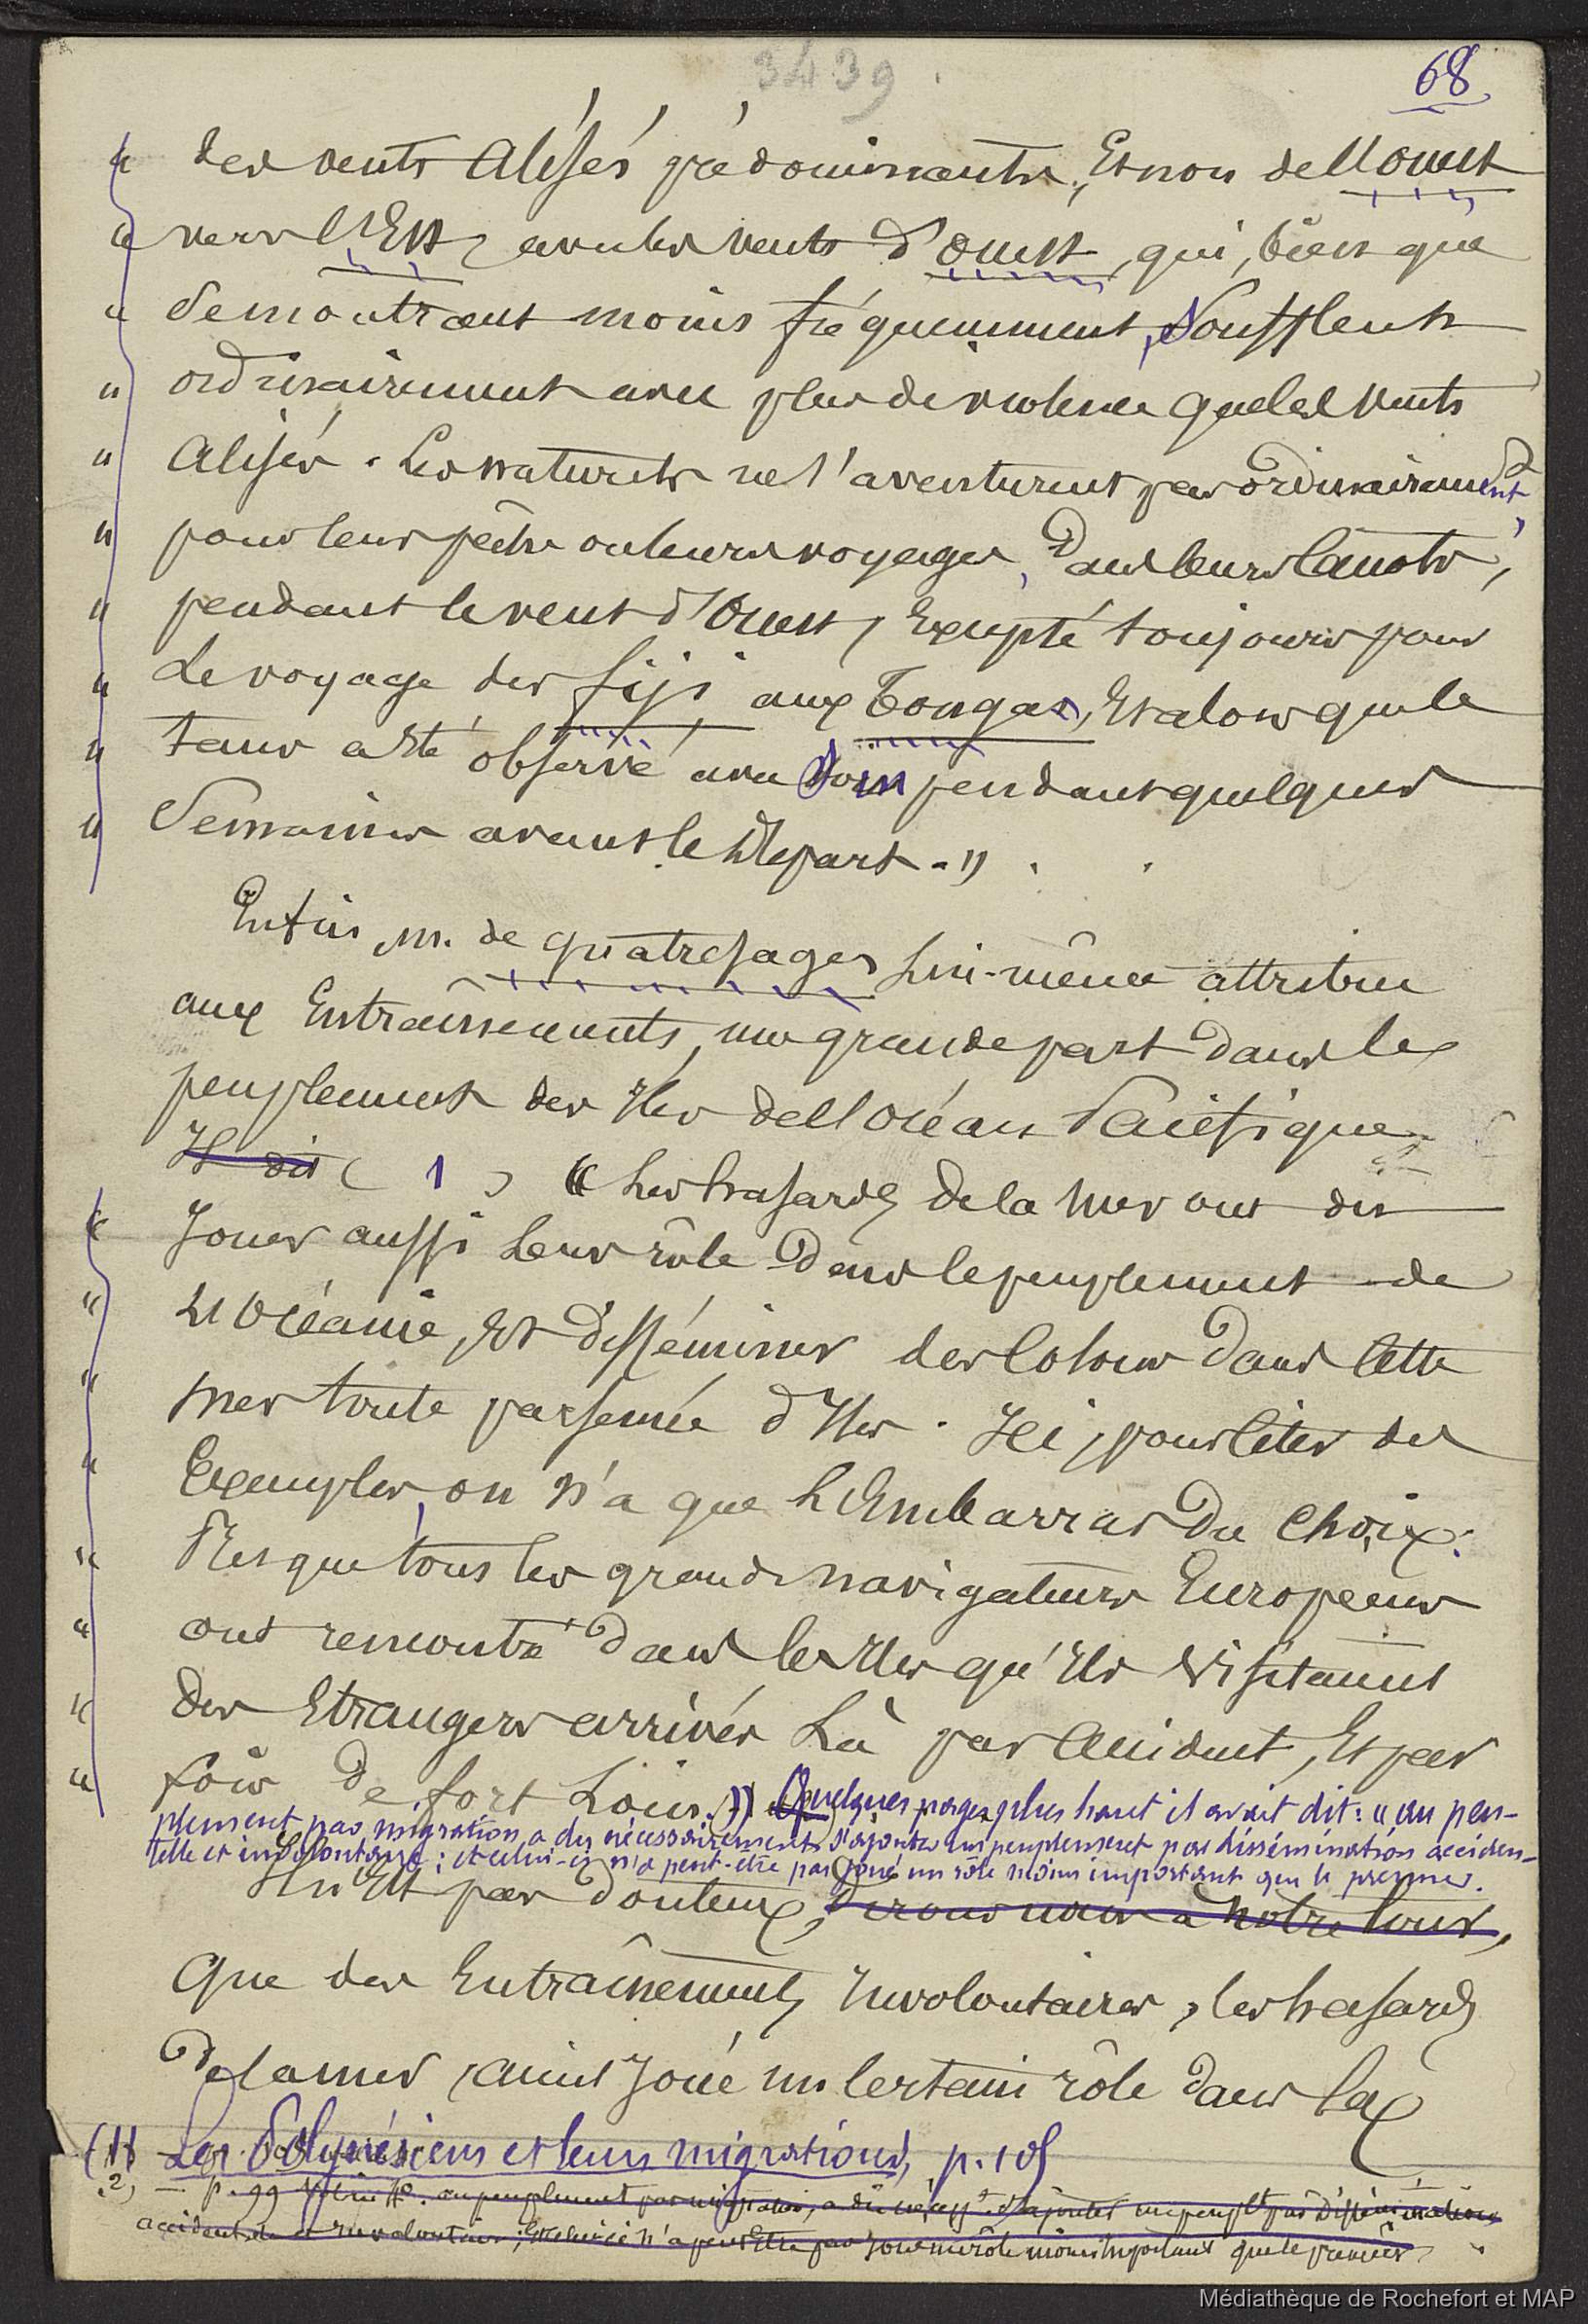 3439
68
" des vents Alisés prédominants, Et non de l'ouest
" vers l'Est, avec les vents d'ouest, qui, bien que
" Se montrant moins fréquemment, Soufflent
" ordinairement avec plus de violence que les vents
" Alisés. Les naturels ne s'aventurent pas ordinairement,
" pour leur pêche ou leurs voyages, Dans leurs Canots,
" pendant le vent d'Ouest, Excepté toujours pour
" Le voyage des fiji aux Tongas, Et alors que le
" tems a Eté observé avec soin pendant quelques
" Semaines avant le Départ. »
Enfin, m. de quatrefages Lui-même attribue
aux Entraînements, une grande part Dans le
peuplement des Iles de l'océan Pacifique.
Il dit ( 1 ) « Les hasards de la mer ont dû
" Jouer aussi Leur rôle Dans le peuplement de
" L'Océanie, Et disséminer des Colons Dans Cette
" mer toute parsemée d'Iles. Ici, pour Citer des
" Exemples, on n'a que L'Embarras Du Choix.
" Presque tous les grands navigateurs Européens
" ont rencontré Dans les Iles qu'ils visitaient
" Des Etrangers arrivés Là par Accident, Et par
" fois De fort Loin. » Quelques pages plus haut il avait dit : « au peu-
plement par migration a du nécessairement s'ajouter un peuplement par dissémination acciden-
telle et involontaire ; et celui-ci n'a peut-être pas joué un rôle moins important que le premier.
Il n'Est pas Douteux, Dirons nous à Notre tour,
Que des Entraînements Involontaires, les hasards
De la mer, aient Joué un Certain rôle Dans la
(1) Les Polynésiens et leurs migrations, p. 105
(2) — p. 99 au peuplement par migration, a dû nécess.t s'ajouter un peupl.t par Dissémination
accidentelle et involontaire ; Et celui-ci n'a peut Etre pas Joué un rôle moins Important que le premier
Médiathèque de Rochefort et MAP